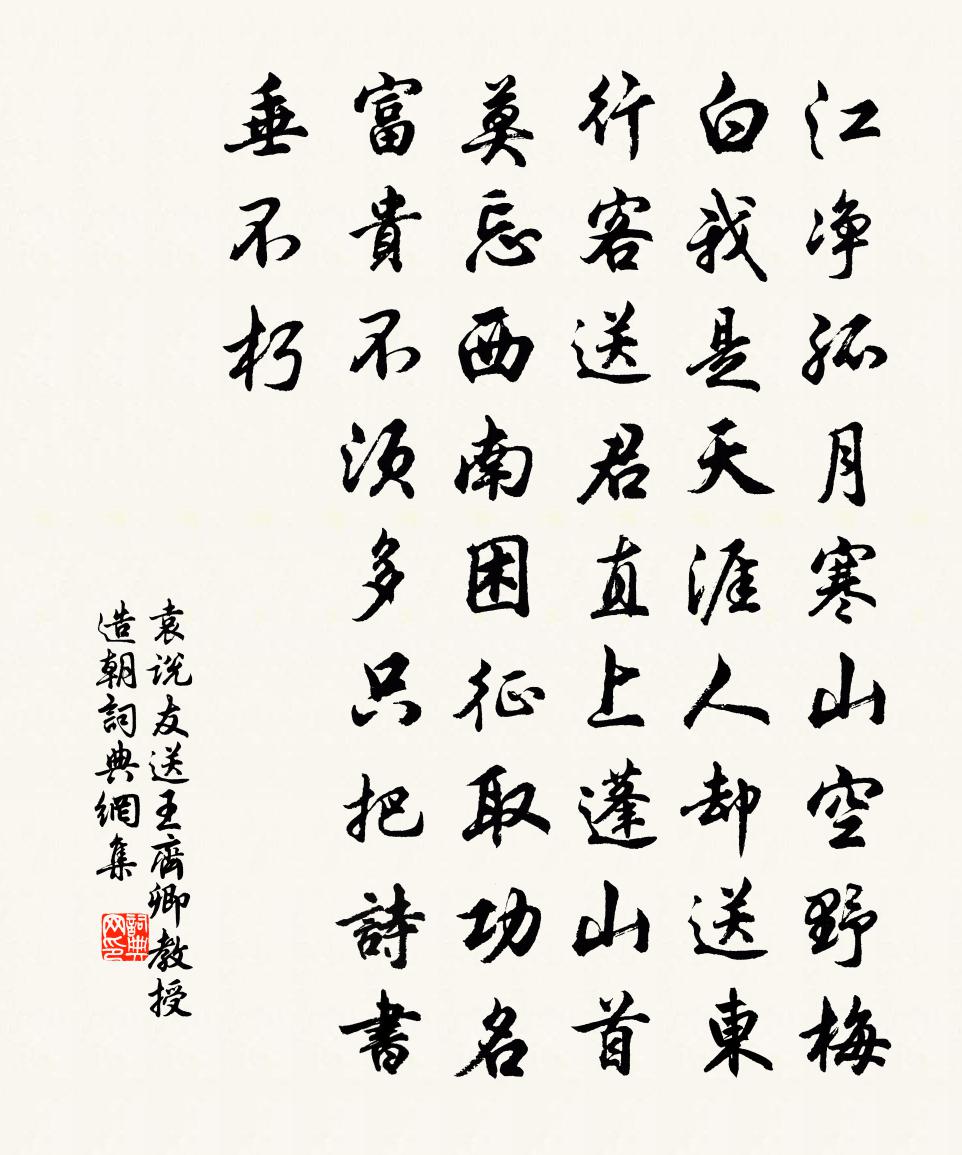 江净孤月寒山空野梅
白我是天涯人却送東
行客送君直上蓬山首
莫忘西南困征取功名
富貴不須多只把詩書
垂不朽
袁説友送王齊卿教授
造朝詞典網集
詞典網印